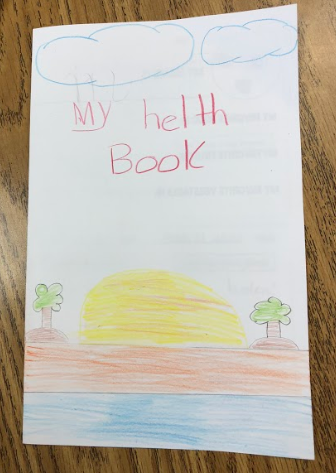 My helth
Book